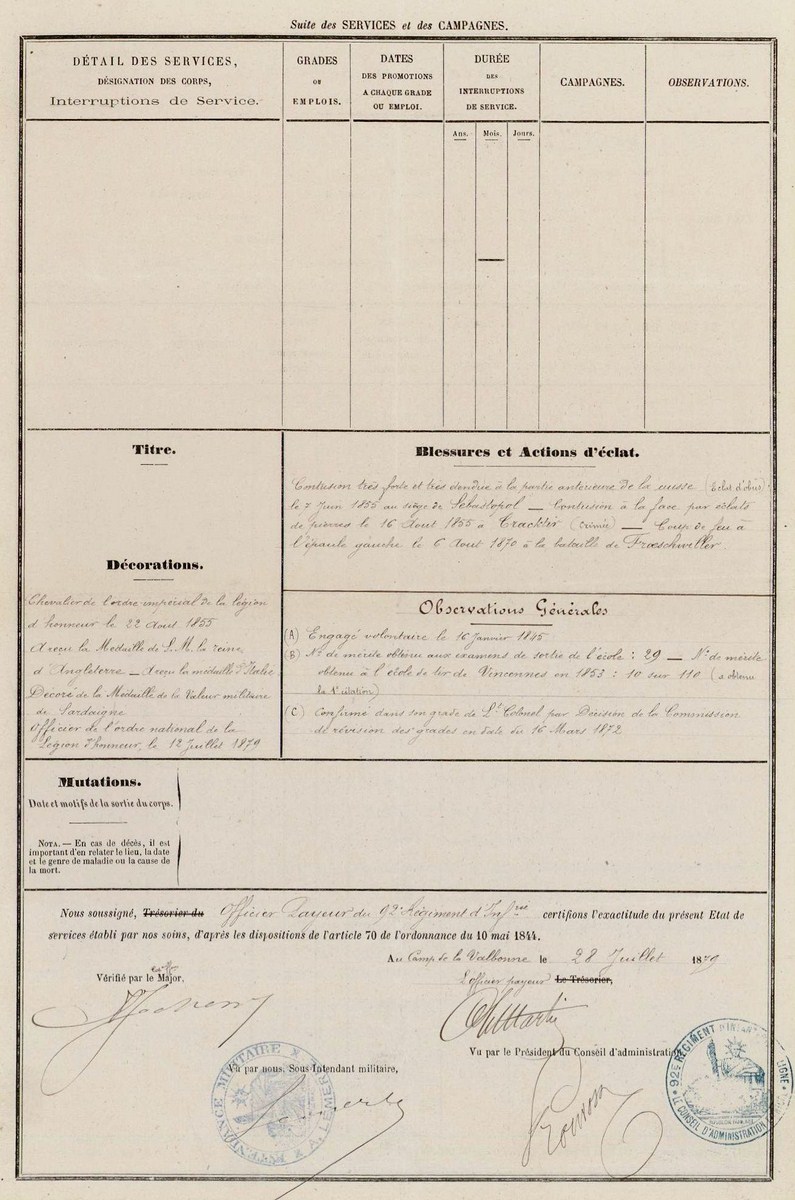 Suite des SERVICES et des CAMPAGNES.
DÉTAIL DES SERVICES,
DÉSIGNATION DES CORPS,
Interruptions de Service.
GRADES
OU
EMPLOIS.
DATES
DES PROMOTIONS
A CHAQUE GRADE
OU EMPLOI.
DURÉE
DES
INTERRUPTIONS
DE SERVICE.
Ans. Mois. Jours.
CAMPAGNES.
OBSERVATIONS.
Titre.
Décorations.
Chevalier de l'ordre impérial de la légion
d'honneur le 22 Aout 1855
A reçu la Médaille de S. M. la reine
d'Angleterre — A reçu la médaille d'Italie
Décoré de la Médaille de la Valeur militaire
de Sardaigne
Officier de l'ordre national de la
Légion d'honneur, le 12 Juillet 1879
Blessures et Actions d'éclat.
Contusion très forte et très étendue à la partie antérieure de la cuisse (Eclat d'obus)
le 7 Juin 1855 au siège de Sébastopol — Contusion à la face par éclats
de pierres le 16 Aout 1855 à Tracktir (Crimée) — Coup de feu à
l'épaule gauche le 6 Aout 1870 à la bataille de Frœschwiller
Observations Générales
(A) Engagé volontaire le 16 Janvier 1845
(B) No de mérite obtenu aux examens de sortie de l'école : 29 — No de mérite
obtenu à l'école de tir de Vincennes en 1853 : 10 sur 110 (a obtenu
la citation)
(C) Confirmé dans son grade de Lt Colonel par Décision de la Commission
de révision des grades en date du 16 Mars 1872
Mutations.
Date et motifs de la sortie du corps.
NOTA. — En cas de décès, il est
important d'en relater le lieu, la date
et le genre de maladie ou la cause de
la mort.
Nous soussigné, Trésorier du Officier Payeur du 92e Régiment d'Infrie certifions l'exactitude du présent Etat de
services établi par nos soins, d'après les dispositions de l'article 70 de l'ordonnance du 10 mai 1844.
Au Camp de la Valbonne le 28 Juillet 1879
Vérifié par le Major,
L'officier payeur Le Trésorier,
Vu par le Président du Conseil d'administration
Vu par nous, Sous-Intendant militaire,
INTENDANCE MILITAIRE
92e RÉGIMENT D'INFANTERIE LIGNE
LE CONSEIL D'ADMINISTRATION